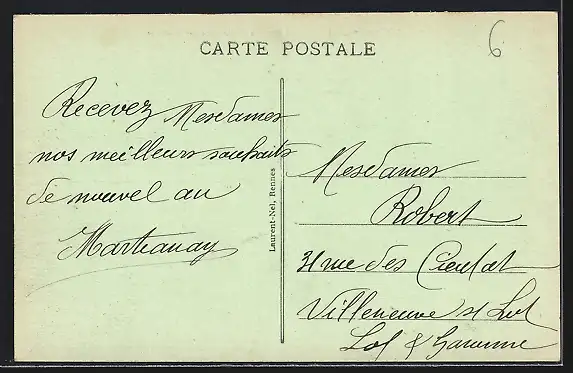 CARTE POSTALE
6
Recevez Mesdames
nos meilleurs souhaits
de nouvel an
Martranay
Laurent-Nel, Rennes
Mesdames
Robert
31 rue des
Villeneuve s/ Lot
Lot & Garonne